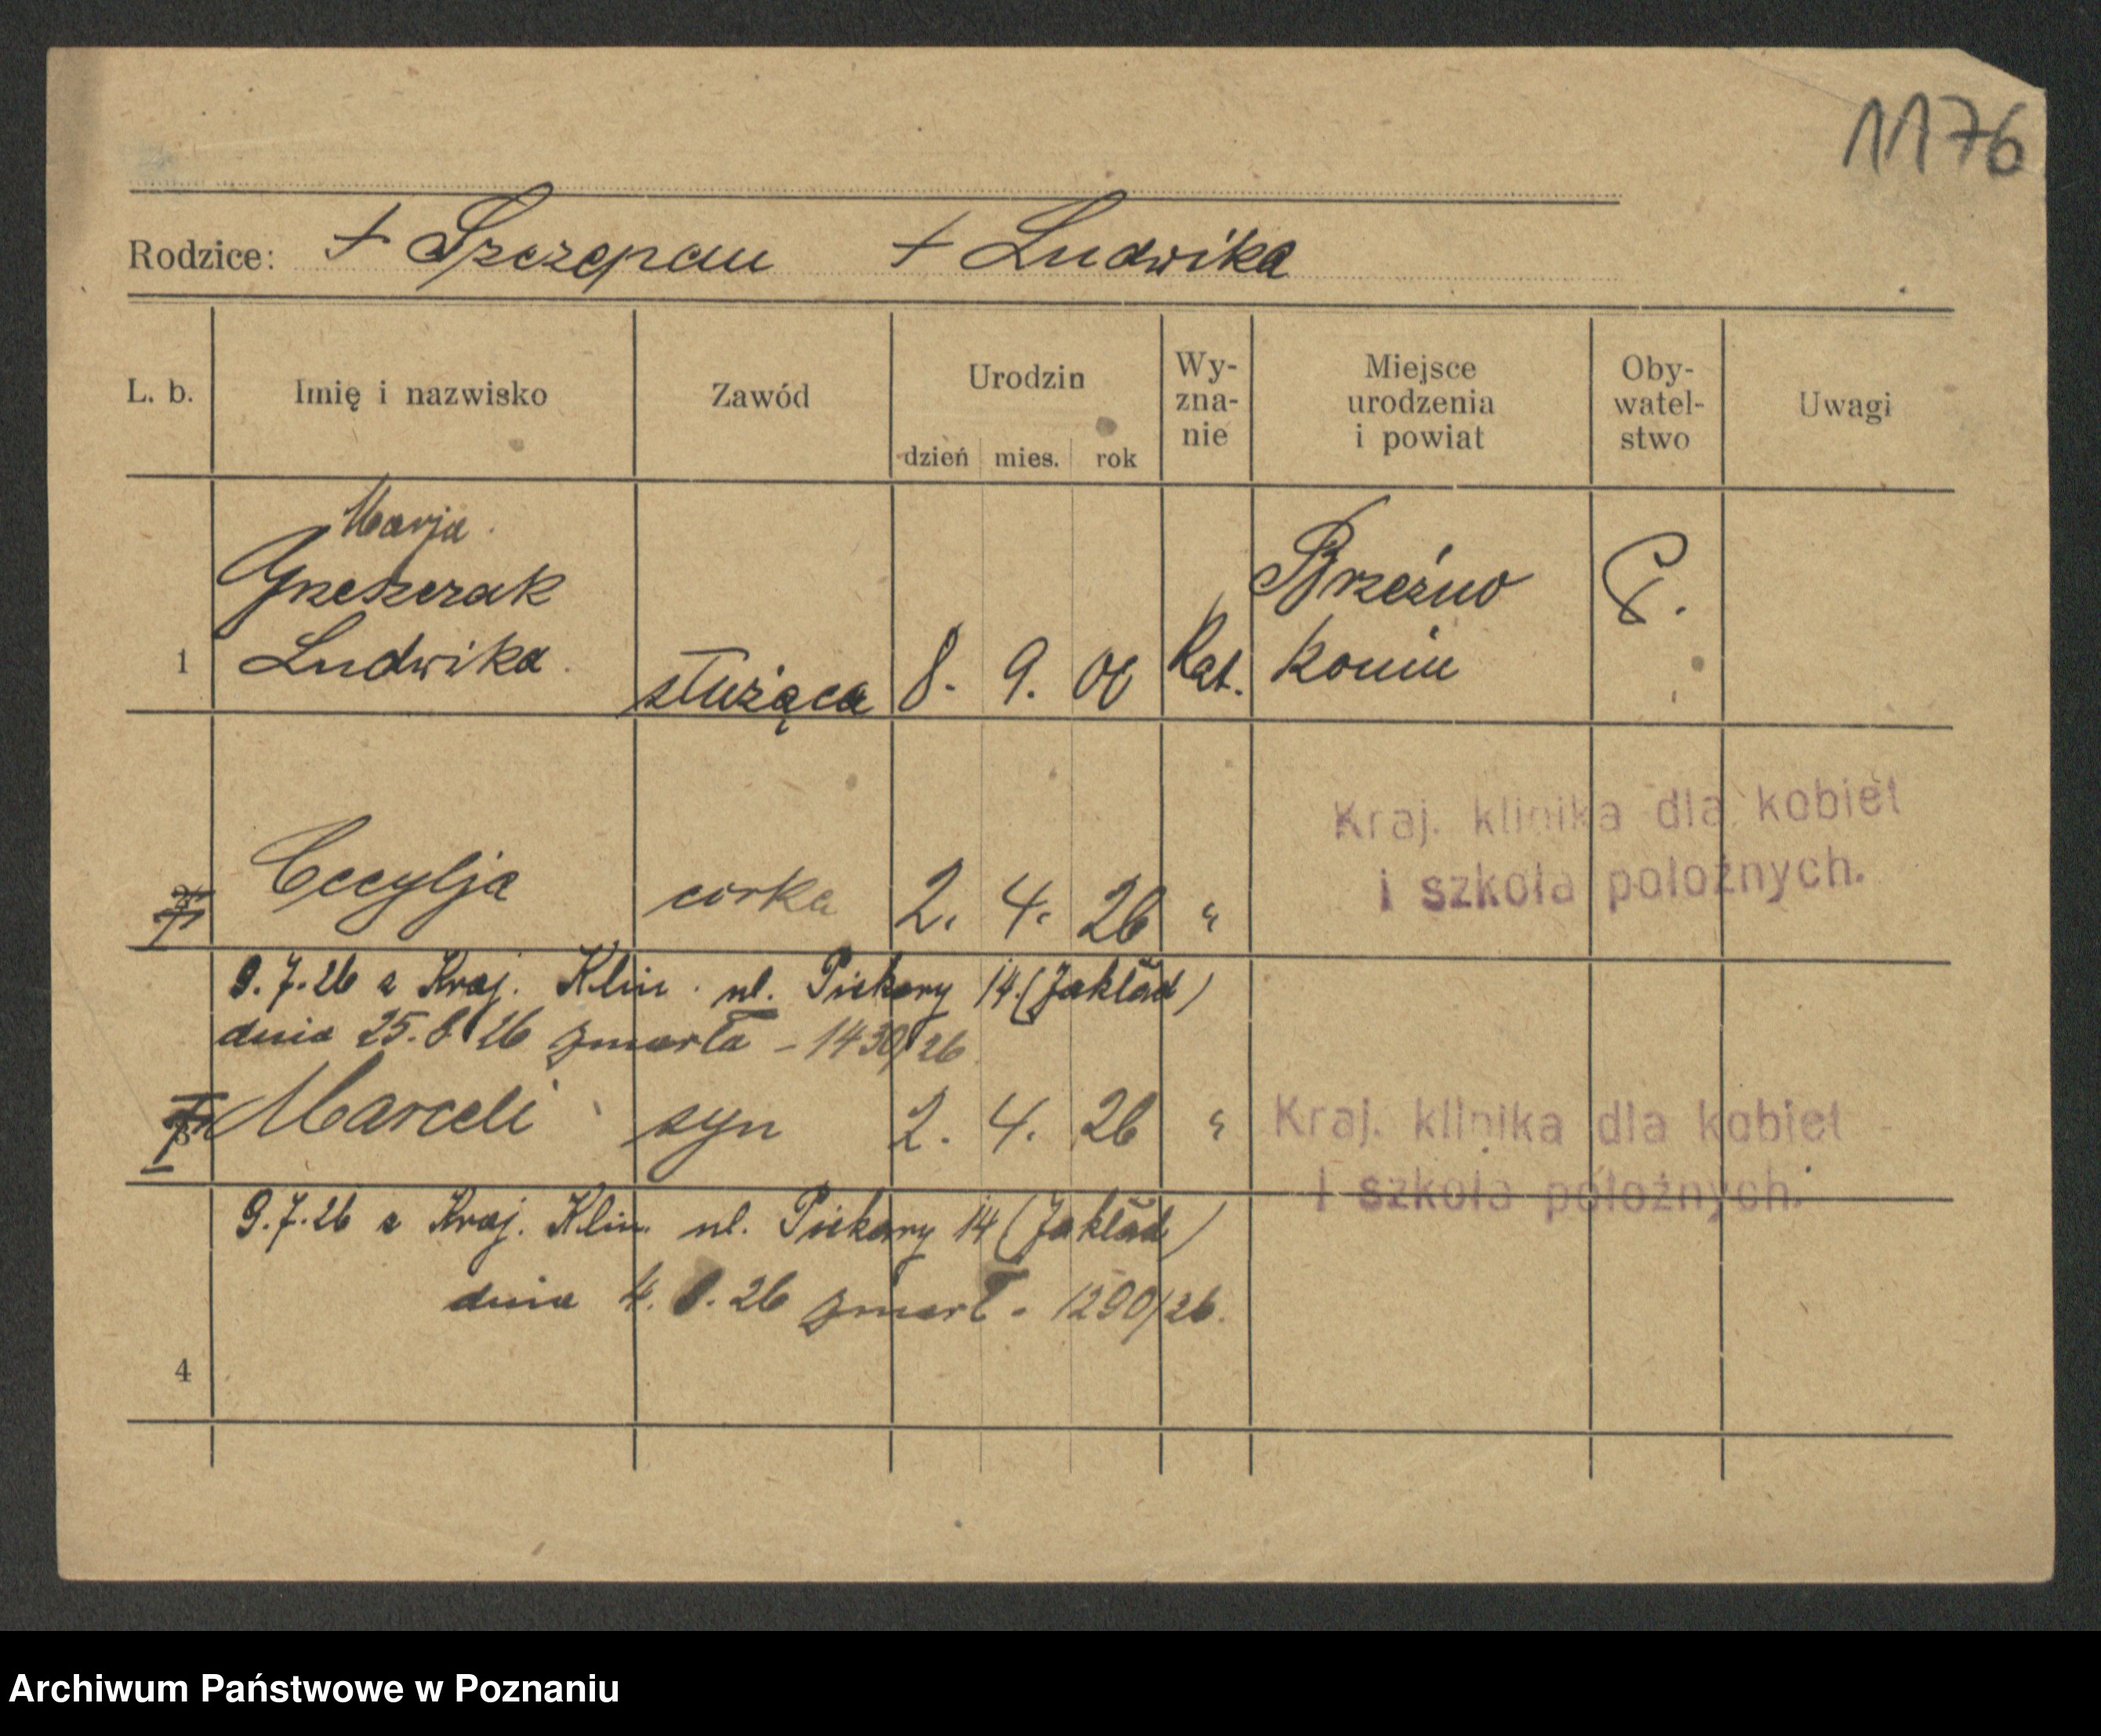 1176
Rodzice: + Szczepan + Ludwika
L. b. Imię i nazwisko Zawód Urodzin dzień mies. rok Wy-zna-nie Miejsce urodzenia i powiat Oby-watel-stwo Uwagi
Marja
Grzeszczak Brzeźno P.
1 Ludwika służąca 8. 9. 00 Kat. Konin
Kraj. klinika dla kobiet
i szkoła położnych.
Cecylja córka 2. 4. 26 "
9.7.26 z Kraj. Klin. ul. Piekary 14 (Zakład)
dnia 25.8.26 zmarła - 1430/26
3 Marceli syn 2. 4. 26 " Kraj. klinika dla kobiet
i szkoła położnych.
9.7.26 z Kraj. Klin. ul. Piekary 14 (Zakład)
dnia 4.8.26 zmarł - 1290/26.
4
Archiwum Państwowe w Poznaniu